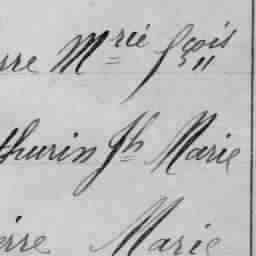 rre Mrie fçois
thurin Jh Marie
erre Marie